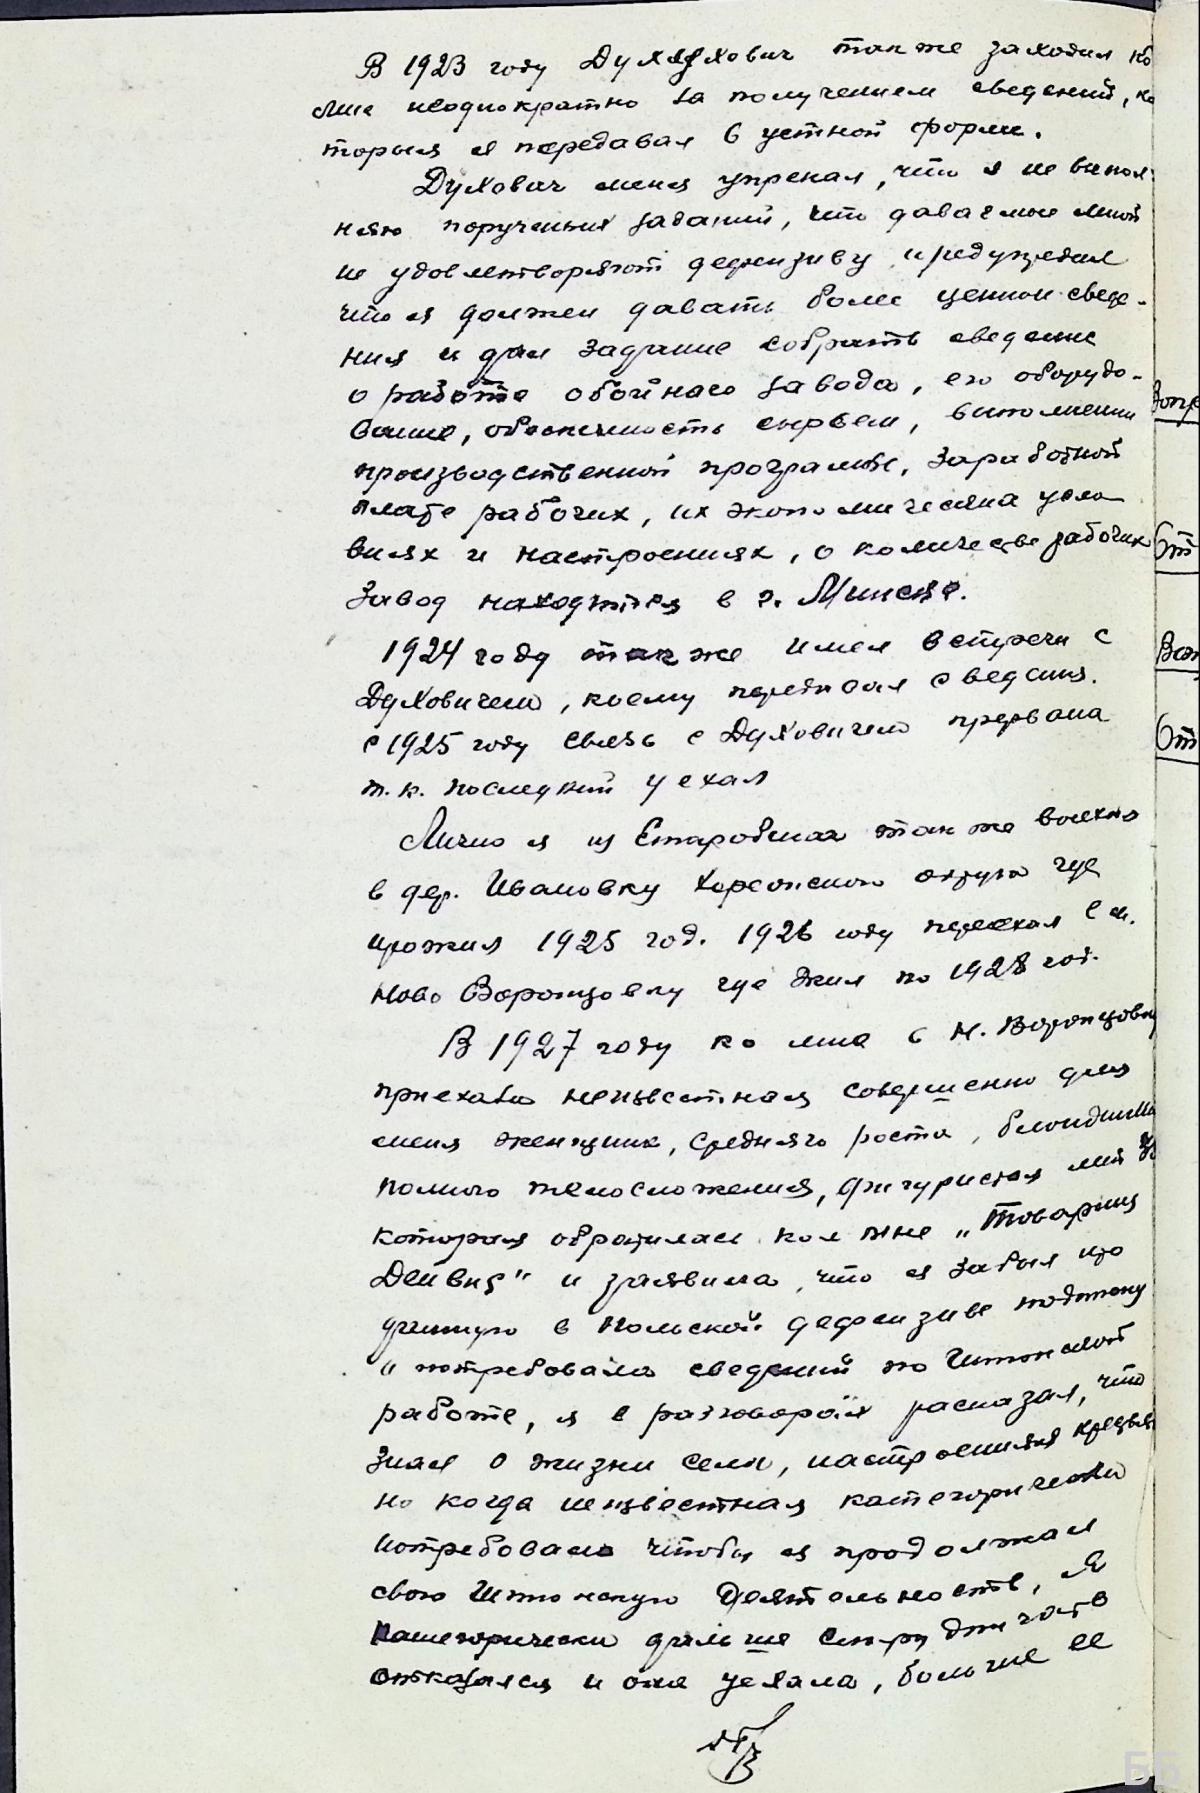 В 1923 году Духович также заходил ко
мне неоднократно за получением сведений, ко
торыя я передавал в устной форме.
Духович меня упрекал, что я не выпол-
няю порученных заданий, что даваемые мной
не удовлетворяют дефензиву, предупредил
что я должен давать более ценные сведе-
ния и дал задание собрать сведение
о работе обойнаго завода, его оборудо-
вание, обеспеченность сырьем, выполнении
производственной программы, заработной
плате рабочих, их экономических усло
виях и настроениях, о количестве рабочих
Завод находится в г. Минске.
1924 году также имел встречи с
Духовичем, коему передавал сведения.
с 1925 году связь с Духовичем прервана
т.к. последний уехал
Лично я из Старобина также выехал
в дер. Ивановку Херсонского округа где
прожил 1925 год. 1926 году переехал в м.
Ново Воронцовку где жил по 1928 год.
В 1927 году ко мне в Н. Воронцовку
приехала неизвестная совершенно для
меня женщина, среднего роста, блондинка
полного телосложения, фигуристая лет
которая обратилась ко мне "Товарищ
Дейвид" и заявила, что я забыл по
ученную в польской дефензиве подписку
и потребовала сведений по шпионской
работе, я в разговорах расказал, что
знал о жизни села, настроениях крестьян
но когда неизвестная категорически
потребовала чтобы я продолжал
свою шпионскую деятельность, я
категорически дальше сотрудничать
отказался и она уехала, больше ее
Вопр
От
Воп
От
ББ